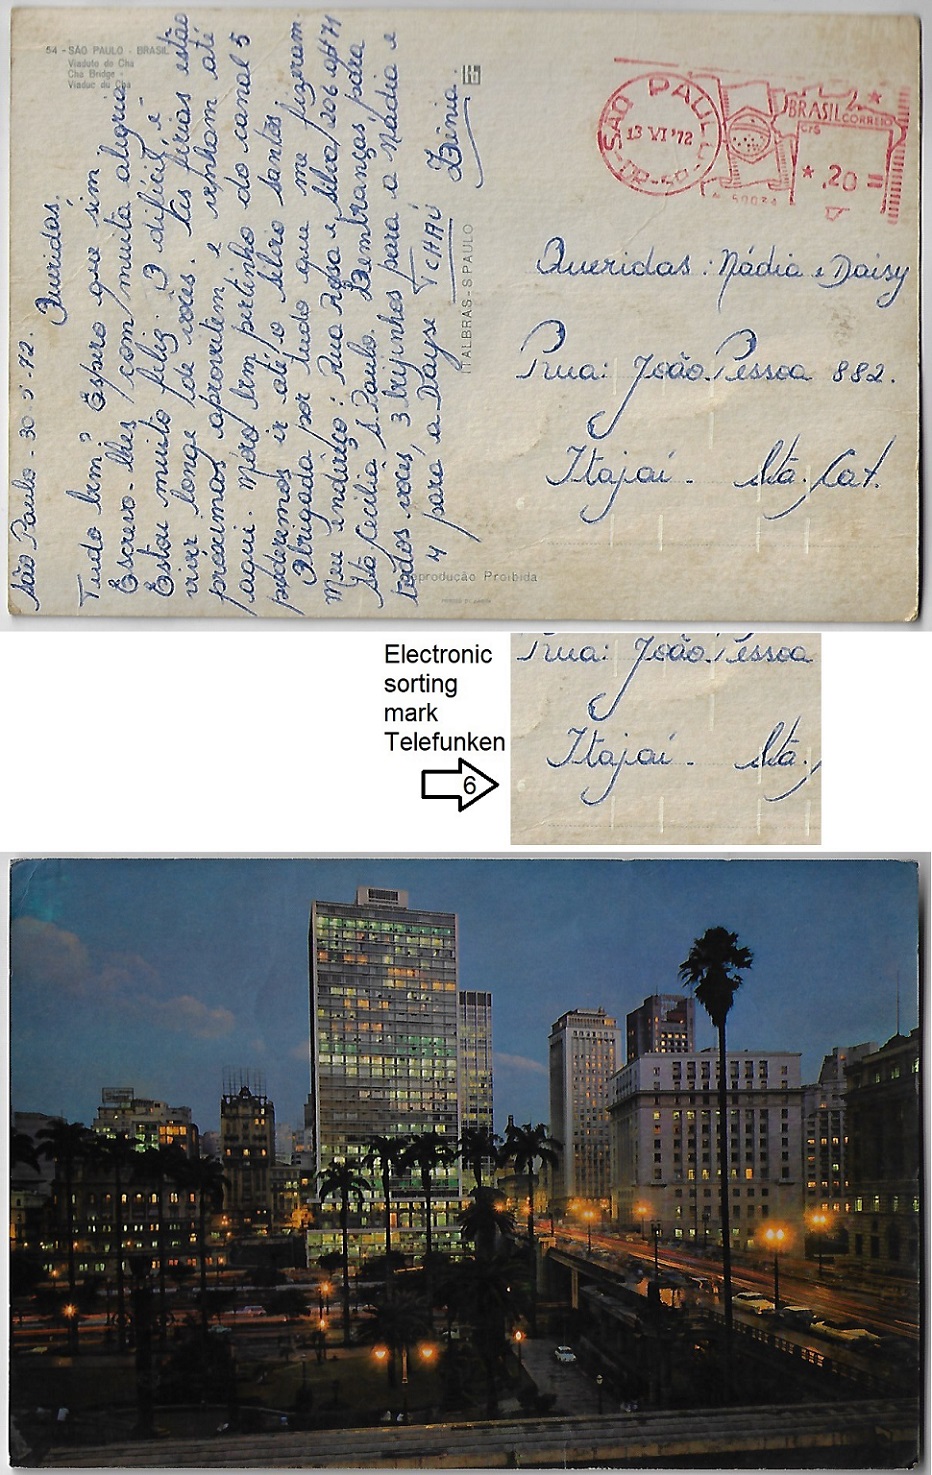 54 - SÃO PAULO - BRASIL
Viaduto do Chá
Chá Bridge -
Viaduc du Chá
São Paulo - 30-5-72.
Queridas.
Tudo bem? Espero que sim
Escrevo-lhes (com) muita alegria.
Estou muito feliz. O difícil é
viver longe (de vocês. Nas férias estão
próximas, aproveitem e venham até
aqui. Moro bem pertinho do canal 5
poderemos ir até o Silvio Santos
Obrigada por tudo que me fizeram.
Meu endereço: Rua Rosa e Silva, 206 aptº 71
Sta Cecília S. Paulo. Lembranças pára
todos vocês, 3 beijinhos para a Nádia e
4 para a Dayse TCHAU
Lênia.
ITALBRAS - S. PAULO
Reprodução Proibida
SÃO PAULO
13 VI '72
DR-SP
BRASIL CORREIO
* ,20
Queridas: Nádia e Daisy
Rua: João Pessoa 882.
Itajaí - Sta. Cat.
Electronic
sorting
mark
Telefunken
6
Rua: João Pessoa
Itajaí - Sta.